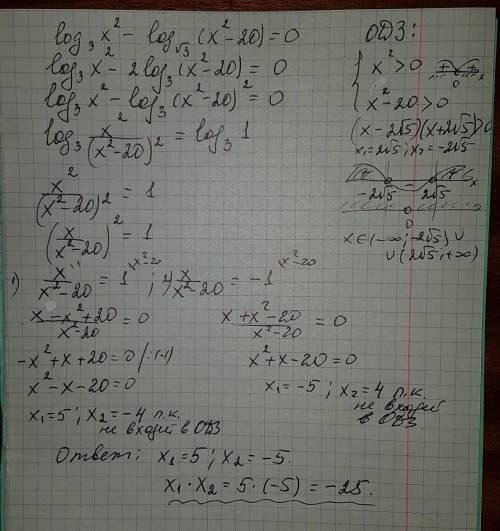 log₃ x² − log_√3 (x²−20) = 0
log₃ x² − 2 log₃ (x²−20) = 0
log₃ x² − log₃ (x²−20)² = 0
log₃ x²/(x²−20)² = log₃ 1
x²/(x²−20)² = 1
(x/(x²−20))² = 1
1) x/(x²−20) = 1 \x²−20 ; 2) x/(x²−20) = −1 \x²−20
(x − x² + 20)/(x²−20) = 0
−x² + x + 20 = 0 /:(−1)
x² − x − 20 = 0
x₁ = 5 ; x₂ = −4 п.к.
не входит в ОДЗ
(x + x² − 20)/(x²−20) = 0
x² + x − 20 = 0
x₁ = −5 ; x₂ = 4 п.к.
не входит
в ОДЗ.
Ответ: x₁ = 5 ; x₂ = −5.
x₁ · x₂ = 5 · (−5) = −25.
ОДЗ:
{ x² > 0 + + 0 x
{ x² − 20 > 0
(x − 2√5)(x + 2√5) > 0
x₁ = 2√5 ; x₂ = −2√5
+ − + x
−2√5 2√5
0
x ∈ (−∞; −2√5) ∪
∪ (2√5; +∞)